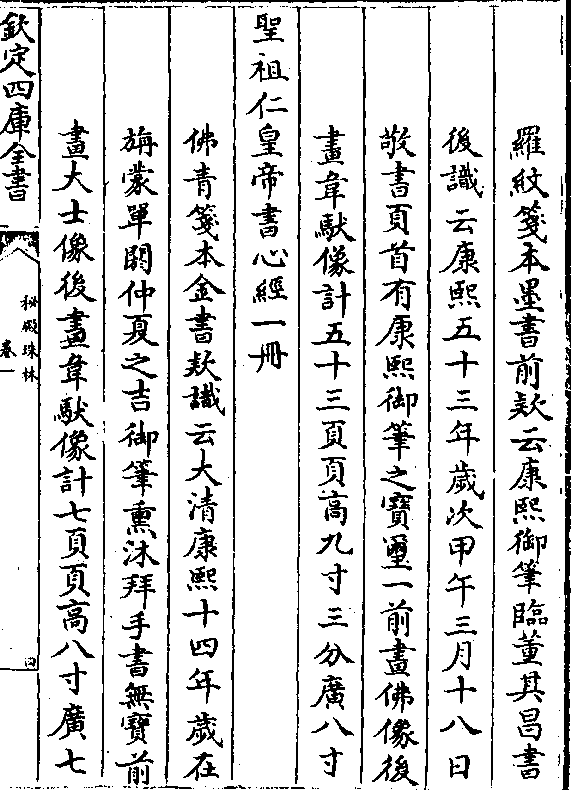 羅紋箋本墨書前欵云康熙御筆臨董其昌書
後識云康熙五十三年歲次甲午三月十八日
敬書頁首有康熙御筆之寶璽一前畫佛像後
畫韋馱像計五十三頁頁高九寸三分廣八寸
聖祖仁皇帝書心經一冊
佛青箋本金書欵識云大清康熙十四年歲在
旃蒙單閼仲夏之吉御筆熏沐拜手書無寶前
畫大士像後畫韋馱像計七頁頁高八寸廣七
欽定四庫全書
秘殿珠林
卷一
四